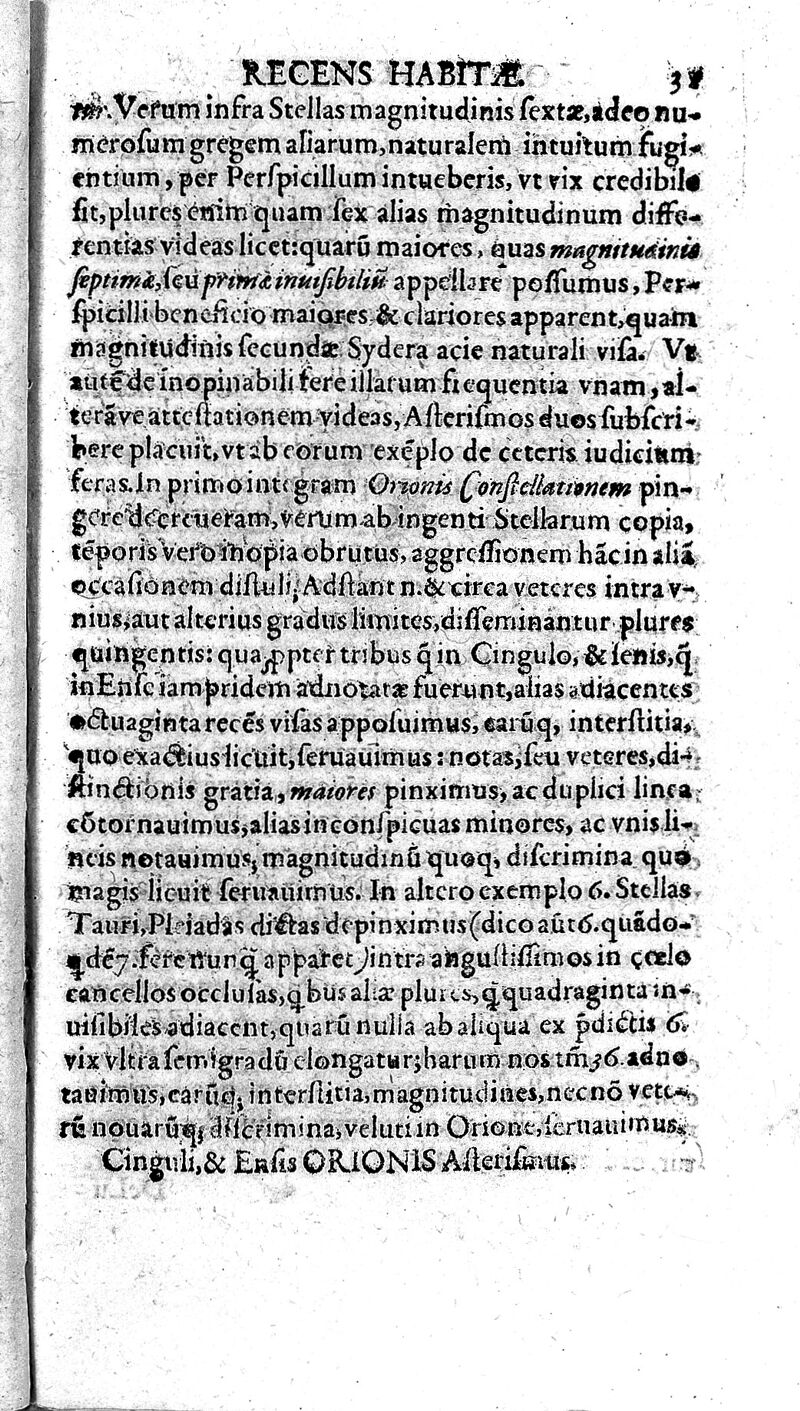 RECENS HABITÆ.
Verum infra Stellas magnitudinis ſextæ,adeo nu-
meroſum gregem aliarum,naturalem intuitum fugi-
entium, per Perſpicillum intueberis, vt vix credibile
ſit,plures enim quam ſex alias magnitudinum diffe-
rentias videas licet:quarũ maiores, quas magnitudinis
ſeptimæ,ſeu primæ inuiſibiliũ appellare poſſumus, Per-
ſpicilli beneficio maiores & clariores apparent,quam
magnitudinis ſecundæ Sydera acie naturali viſa. Vt
autẽ de inopinabili fere illarum frequentia vnam, al-
terãve atteſtationem videas, Aſteriſmos duos ſubſcri-
bere placuit,vt ab eorum exẽplo de ceteris iudicium
feras.In primo integram Orionis Conſtellationem pin-
gere decreueram,verum ab ingenti Stellarum copia,
tẽporis vero inopia obrutus, aggreſſionem hãc in aliã
occaſionem diſtuli, Adſtant n.& circa veteres intra v-
nius,aut alterius gradus limites,diſſeminantur plures
quingentis: quaꝓpter tribus q̃ in Cingulo, & ſenis,q̃
in Enſe iampridem adnotatæ fuerunt,alias adiacentes
octuaginta recẽs viſas appoſuimus, earũq, interſtitia,
quo exactius licuit,ſeruauimus: notas,ſeu veteres,di-
ſtinctionis gratia, maiores pinximus, ac duplici linea
cõtornauimus,alias inconſpicuas minores, ac vnis li-
neis notauimus; magnitudinũ quoq, diſcrimina quo
magis licuit ſeruauimus. In altero exemplo 6. Stellas
Tauri,Pleiadas dictas depinximus (dico aũt 6.quãdo-
q̃dẽ 7.fere nunq̃ apparẽt) intra anguſtiſſimos in çœlo
cancellos occluſas,q̃bus aliæ plures,q̃ quadraginta in-
uiſibiles adiacent,quarũ nulla ab aliqua ex p̃dictis 6.
vix vltra ſemigradũ elongatur;harum nos tm̃ 36 adno
tauimus,earũq; interſtitia,magnitudines,necnõ vete-
rũ nouarũq; diſcrimina,veluti in Orione,ſeruauimus.
Cinguli,& Enſis ORIONIS Aſteriſmus.